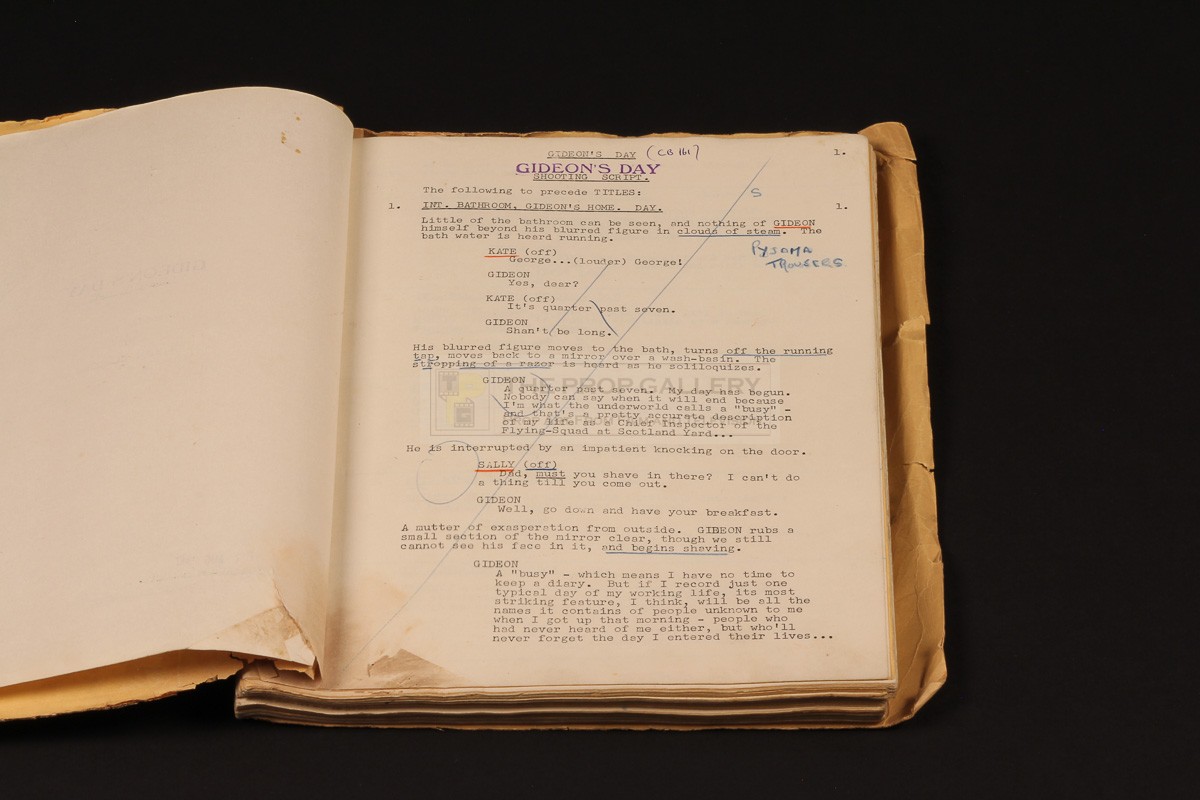 GIDEON'S DAY (CB 161) 1.
GIDEON'S DAY
SHOOTING SCRIPT.
The following to precede TITLES: S
1. INT. BATHROOM, GIDEON'S HOME. DAY. 1.
Little of the bathroom can be seen, and nothing of GIDEON
himself beyond his blurred figure in clouds of steam. The
bath water is heard running.
PYJAMA
TROUSERS
KATE (off)
George...(louder) George!
GIDEON
Yes, dear?
KATE (off)
It's quarter past seven.
GIDEON
Shan't be long.
His blurred figure moves to the bath, turns off the running
tap, moves back to a mirror over a wash-basin. The
stropping of a razor is heard as he soliloquizes.
GIDEON
A quarter past seven. My day has begun.
Nobody can say when it will end because
I'm what the underworld calls a "busy" -
and that's a pretty accurate description
of my life as a Chief Inspector of the
Flying-Squad at Scotland Yard...
THE PROP GALLERY
He is interrupted by an impatient knocking on the door.
SALLY (off)
Dad, must you shave in there? I can't do
a thing till you come out.
GIDEON
Well, go down and have your breakfast.
A mutter of exasperation from outside. GIBEON rubs a
small section of the mirror clear, though we still
cannot see his face in it, and begins shaving.
GIDEON
A "busy" - which means I have no time to
keep a diary. But if I record just one
typical day of my working life, its most
striking feature, I think, will be all the
names it contains of people unknown to me
when I got up that morning - people who
had never heard of me either, but who'll
never forget the day I entered their lives...